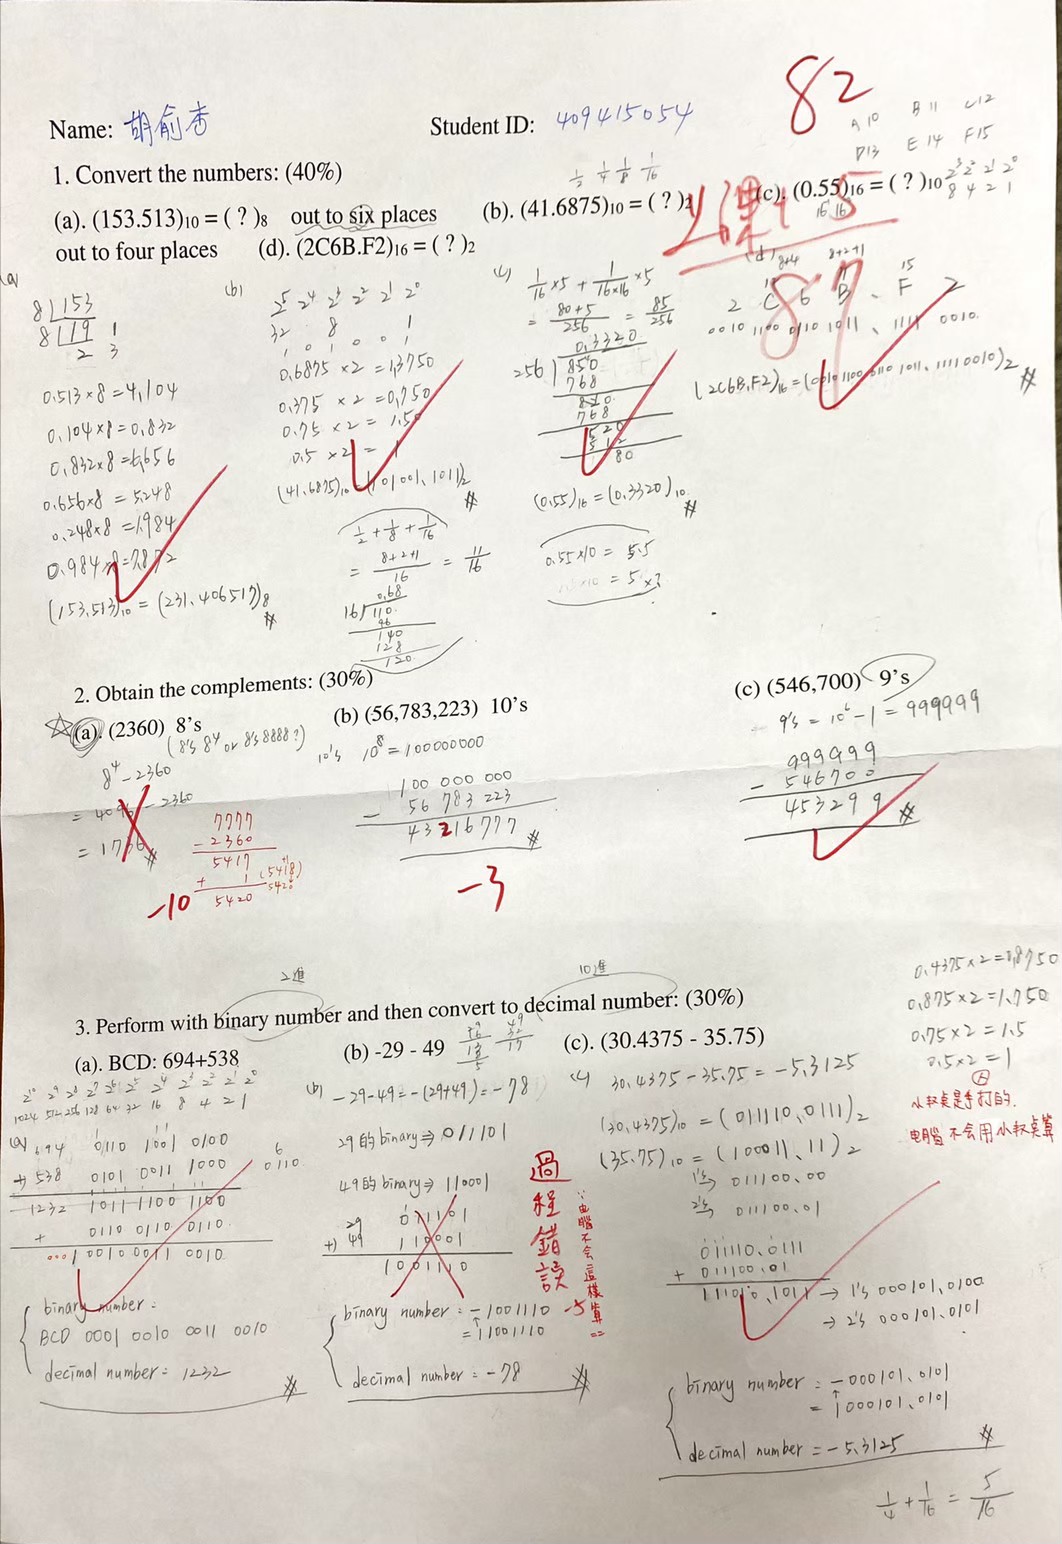 82
Name: 胡俞杏
Student ID: 409415054
A 10 B 11 C 12
D13 E 14 F15
1. Convert the numbers: (40%)
1/2 1/4 1/8 1/16
2³ 2² 2¹ 2⁰
8 4 2 1
(a). (153.513)₁₀ = ( ? )₈ out to six places (b). (41.6875)₁₀ = ( ? )₂ (c). (0.55)₁₆ = ( ? )₁₀
out to four places (d). (2C6B.F2)₁₆ = ( ? )₂
+5
87
(a)
8 153
8 19 1
2 3
0.513×8=4.104
0.104×8=0.832
0.832×8=6.656
0.656×8=5.248
0.248×8=1.984
0.984×8=7.872
(153.513)₁₀ = (231.406517)₈
(b)
2⁵ 2⁴ 2³ 2² 2¹ 2⁰
32 8 1
1 0 1 0 0 1
0.6875 ×2 =1.3750
0.375 ×2 =0.750
0.75 ×2 = 1.50
0.5 ×2 = 1
(41.6875)₁₀ = (101001.1011)₂
1/2 + 1/8 + 1/16
= 8+2+1/16 = 11/16
0.68
16 110
96
140
128
120
(c) 1/16 ×5 + 1/16×16 ×5
= 80+5/256 = 85/256
0.3320
256 850
768
820
768
520
512
80
(0.55)₁₆ = (0.3320)₁₀
0.55×10 = 5.5
(d) 8+4 8+2+1 15
2 C 6 B . F 2
0010 1100 0110 1011 . 1111 0010
(2C6B.F2)₁₆ = (0010 1100 0110 1011.11110010)₂
2. Obtain the complements: (30%)
(a). (2360) 8's
(8's 8⁴ or 8's 8888?)
8⁴ - 2360
= 4096 - 2360
= 1736
7777
- 2360
5417
+ 1 (5418)
5420
5420
-10
(b) (56,783,223) 10's
10's 10⁸ = 100000000
100 000 000
- 56 783 223
43216777
-3
(c) (546,700) 9's
9's = 10⁶ - 1 = 999999
999999
- 546700
453299
2進 10進
3. Perform with binary number and then convert to decimal number: (30%)
(a). BCD: 694+538
2¹⁰ 2⁹ 2⁸ 2⁷ 2⁶ 2⁵ 2⁴ 2³ 2² 2¹ 2⁰
1024 512 256 128 64 32 16 8 4 2 1
(a) 694 0110 1001 0100
+ 538 0101 0011 1000
1232 1011 1100 1100
+ 0110 0110 0110
0001 0010 0011 0010
6
0110
binary number =
BCD 0001 0010 0011 0010
decimal number = 1232
(b) -29 - 49
(b) -29-49=-(29+49)=-78
29的binary⇒011101
49的binary⇒110001
29 011101
+) 49 110001
1001110
binary number = -1001110
= 11001110
decimal number = -78
-5
過程錯誤
∵电腦不会這樣算
(c). (30.4375 - 35.75)
(c) 30.4375-35.75 = -5.3125
(30.4375)₁₀ = (011110.0111)₂
(35.75)₁₀ = (100011.11)₂
1's→ 011100.00
2's→ 011100.01
011110.0111
+ 011100.01
111010.1011 → 1's 000101.0100
→ 2's 000101.0101
binary number = -000101.0101
= 1000101.0101
decimal number = -5.3125
1/4 + 1/16 = 5/16
0.4375×2=0.8750
0.875×2=1.750
0.75×2 = 1.5
0.5×2 = 1
小数桌是手打的.
电腦不会用小数桌算